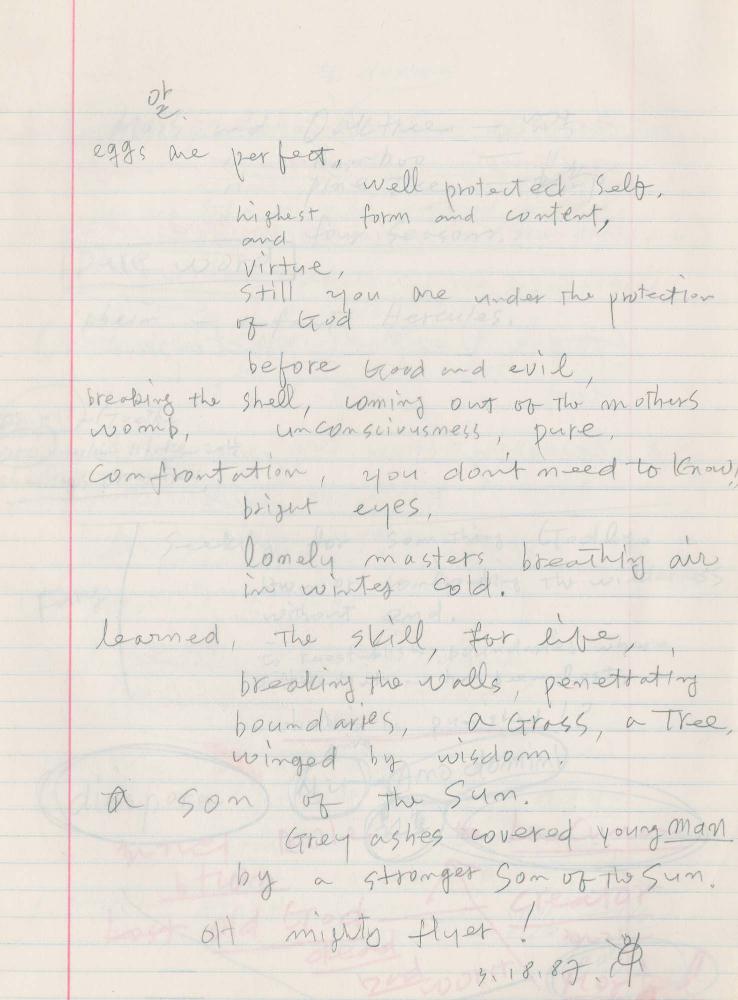 알
eggs are perfect,
well protected Self,
highest form and content,
and
virtue,
still you are under the protection
of God
before Good and evil,
breaking the shell, coming out of the mothers
womb, unconsciousness, pure,
confrontation, you don't need to know,
bright eyes,
lonely masters breathing air
in winter cold.
learned, the skill, for life,
breaking the walls, penetrating
boundaries, a Grass, a Tree,
winged by wisdom.
A son of the Sun.
Grey ashes covered young man
by a stronger Son of the Sun.
OH mighty flyer!
3.18.87.